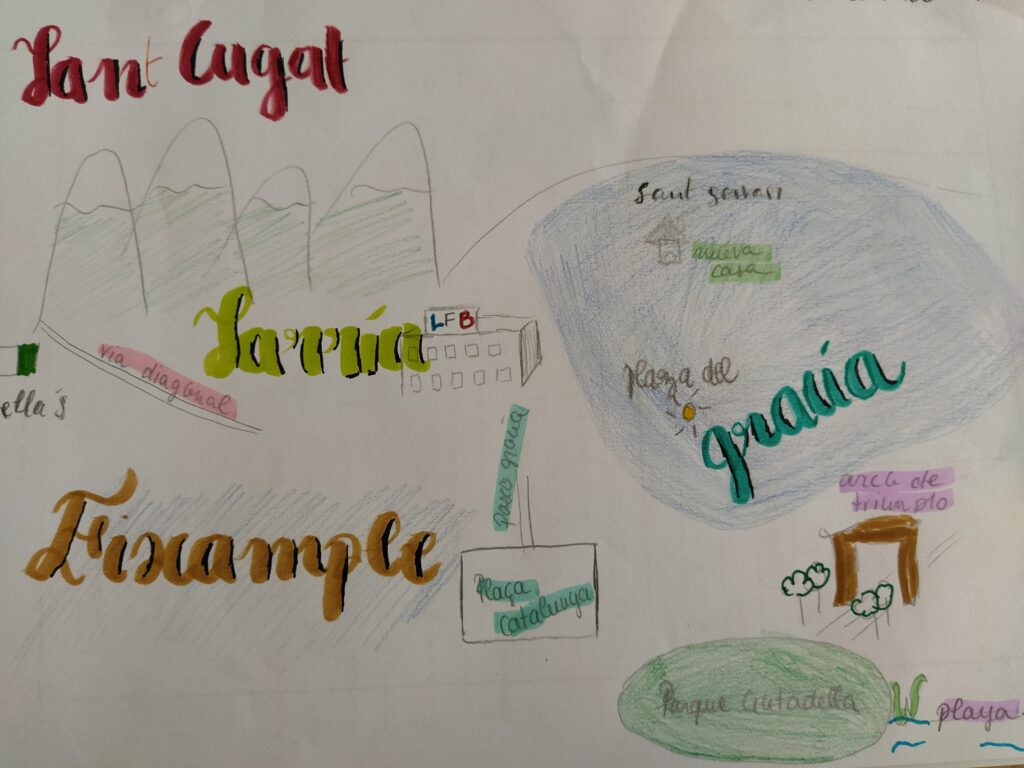 Sant Cugat
Sant Gervasi
nueva
casa
Sarria
LFB
via diagonal
ella's
plaza del
gracia
paseo gracia
arco de
triumplo
Eixample
Plaça
Catalunya
Parque Ciutadella
playa